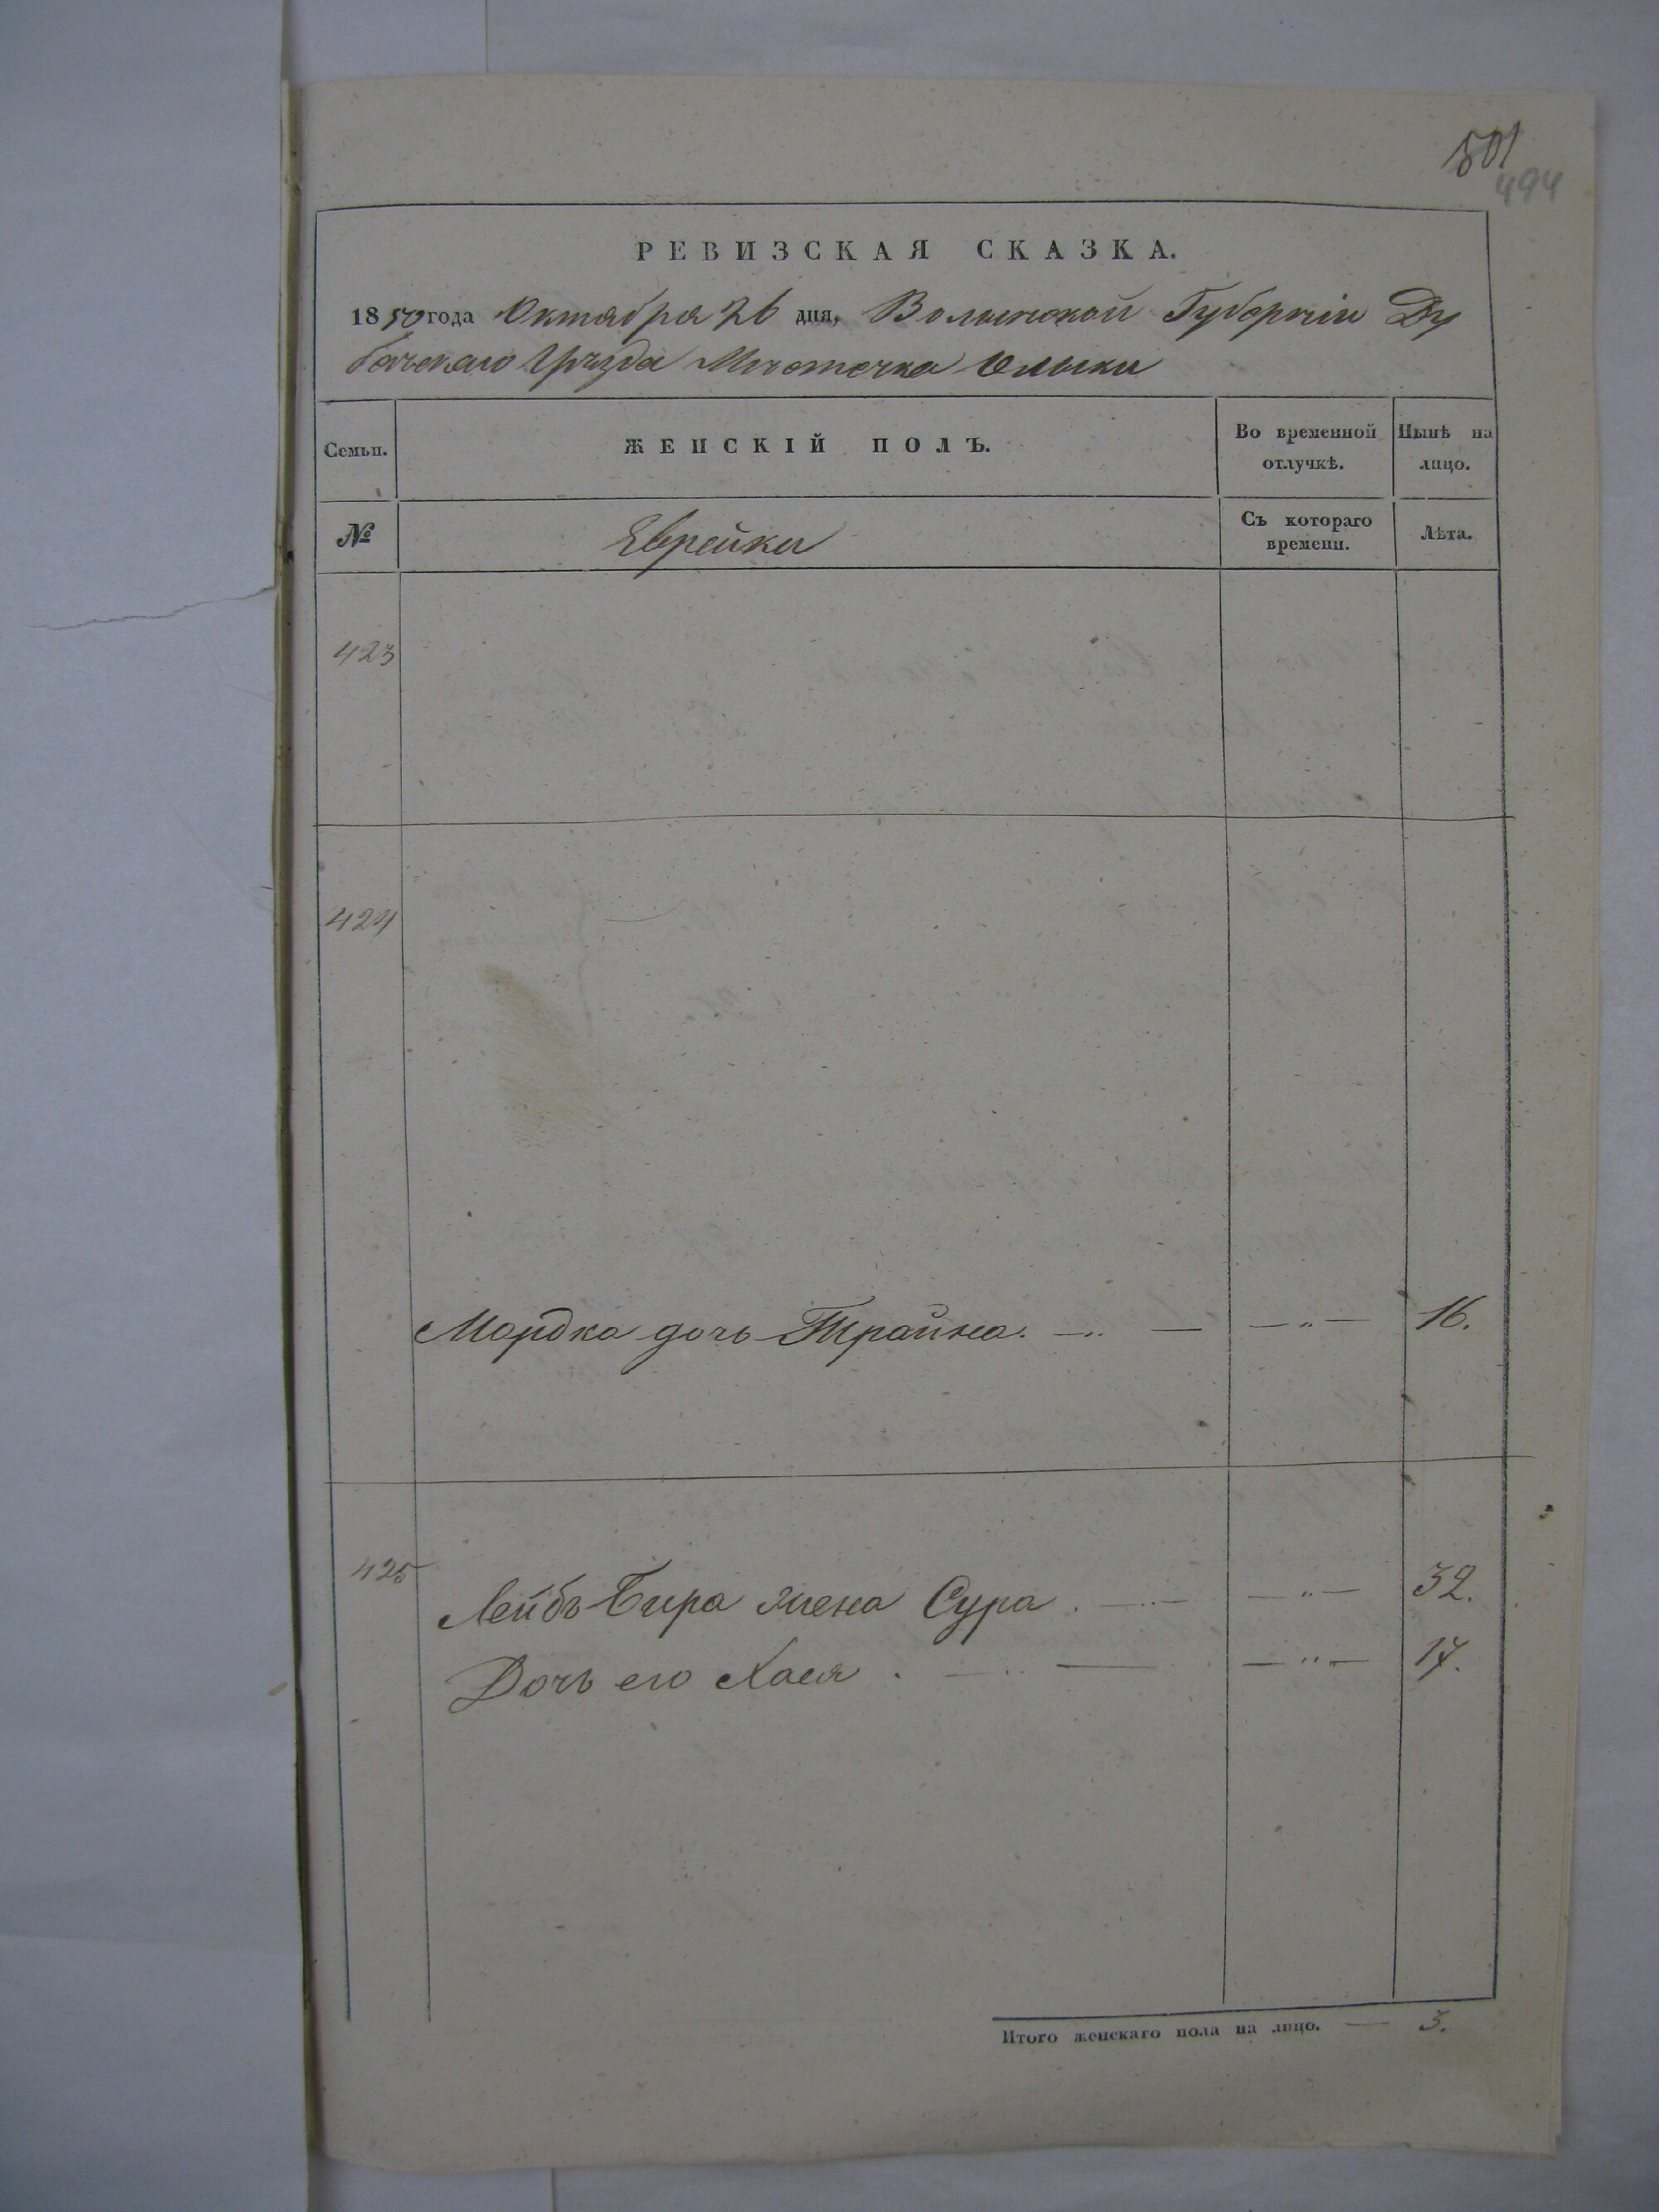 501
494
РЕВИЗСКАЯ СКАЗКА.
1850 года Октября 26 дня, Волынской Губерніи Ду
бенскаго Уѣзда Мѣстечка Олыки
Семьи.
ЖЕНСКІЙ ПОЛЪ.
Во временной отлучкѣ.
Нынѣ на лицо.
№
Еврейки
Съ котораго времени.
Лѣта.
423
424
Мордка дочь Трайна. — „ — — „ — 16.
425
Лейбъ Бира жена Сура . — „ — — „ — 32.
Дочь его Хася . — „ — — „ — 17.
Итого женскаго пола на лицо. — 3.